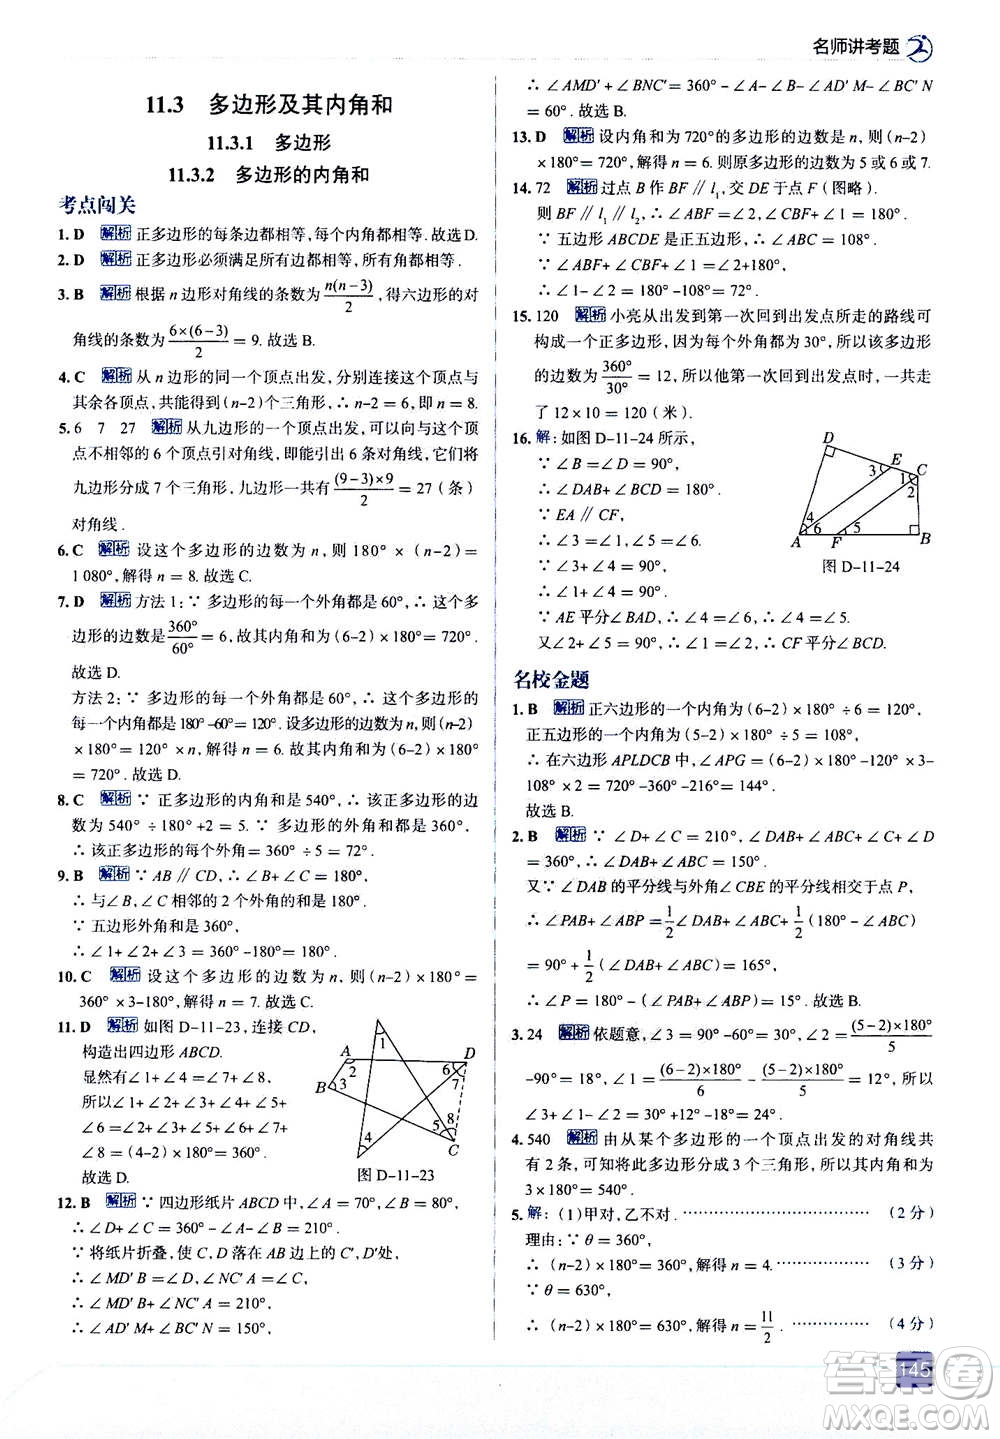 名师讲考题
11.3 多边形及其内角和
11.3.1 多边形
11.3.2 多边形的内角和
考点闯关
1. D 解析 正多边形的每条边都相等,每个内角都相等.故选D.
2. D 解析 正多边形必须满足所有边都相等,所有角都相等.
3. B 解析 根据 n 边形对角线的条数为n(n-3)/2,得六边形的对
角线的条数为6×(6-3)/2 = 9. 故选 B.
4. C 解析 从 n 边形的同一个顶点出发,分别连接这个顶点与
其余各顶点,共能得到 (n-2)个三角形,∴ n-2 = 6,即 n = 8.
5. 6 7 27 解析 从九边形的一个顶点出发,可以向与这个顶
点不相邻的 6 个顶点引对角线,即能引出 6 条对角线,它们将
九边形分成 7 个三角形,九边形一共有(9-3)×9/2 = 27(条)
对角线.
6. C 解析 设这个多边形的边数为 n,则 180° ×(n-2)=
1 080°,解得 n = 8.故选 C.
7. D 解析 方法 1:∵ 多边形的每一个外角都为 60°,∴ 这个多
边形的边数是360°/60° = 6,故其内角和为(6-2)×180° = 720°.
故选 D.
方法 2:∵ 多边形的每一个外角都为 60°,∴ 这个多边形的
每一个内角都为 180° -60° = 120°. 设多边形的边数为 n,(n-2)
×180° = 120° ×n,解得 n = 6. 故其内角和为(6-2)×180°
= 720°.故选 D.
8. C 解析 ∵ 正多边形的内角和是 540°,∴ 该正多边形的边
数为 540° ÷180° +2 = 5. ∵ 多边形的外角和都是 360°,
∴ 该正多边形的每个外角 = 360° ÷5 = 72°.故选 C.
9. B 解析 ∵ AB ∥ CD,∴ ∠B+∠C = 180°,
∴ 与∠B,∠C 相邻的 2 个外角的和为 180°.
∵ 五边形外角和是 360°,
∴ ∠1+∠2+∠3 = 360° -180° = 180°.故选 B.
10. C 解析 设这个多边形的边数为 n,则(n-2)×180° =
360° ×3-180°,解得 n = 7. 故选 C.
11. D 解析 如图 D-11-23,连接 CD,
构造出四边形 ABCD.
显然有∠1+∠4 = ∠7+∠8,
所以∠1+∠2+∠3+∠4+∠5+
∠6 = ∠2+∠3+∠5+∠6+∠7+
∠8 = (4-2)×180° = 360°.
故选 D.
A
B
C
D
1
2
3
4
5
6
7
8
图 D-11-23
12. B 解析 ∵ 四边形纸片 ABCD 中,∠A = 70°,∠B = 80°,
∴ ∠D+∠C = 360° -∠A-∠B = 210°.
∵ 将纸片折叠,使 C,D 落在 AB 边上的 C′,D′处,
∴ ∠MD′ B = ∠D,∠NC′ A = ∠C,
∴ ∠MD′ B+∠NC′ A = 210°,
∴ ∠AD′ M+∠BC′ N = 150°,
∴ ∠AMD′ +∠BNC′ = 360° -∠A-∠B-∠AD′ M-∠BC′ N
= 60°. 故选 B.
13. D 解析 设内角和为720°的多边形的边数是 n,则(n-2)
×180° = 720°,解得 n = 6. 则原多边形的边数为 5 或 6 或 7.
14. 72 解析 过点 B 作 BF ∥ l₁,交 DE 于点 F(图略).
则 BF ∥ l₁ ∥ l₂,∴ ∠2 = ∠ABF,∠CBF+∠1 = 180°.
∵ 五边形 ABCDE 是正五边形,∴ ∠ABC = 108°.
∵ ∠ABF+∠CBF = ∠ABC = 108°,
∴ ∠1-∠2 = 180° -108° = 72°.
15. 120 解析 小亮从出发到第一次回到出发点所走的路线可
构成一个正多边形,因为每个外角都为 30°,所以该多边形
的边数为360°/30° = 12,所以他第一次回到出发点时,一共走
了 12×10 = 120(米).
16. 解:如图 D-11-24 所示,
∵ ∠D = ∠B = 90°,
∴ ∠DAB+∠BCD = 180°.
∵ EA ∥ CF,
∴ ∠3 = ∠1,∠5 = ∠6.
∵ ∠3+∠4 = 90°,
∴ ∠1+∠4 = 90°.
∵ AE 平分∠BAD,∴ ∠4 = ∠6 = ∠5.
又∠2+∠5 = 90°,∴ ∠1 = ∠2,∴ CF 平分∠BCD.
D
E
C
A
F
B
3
1
2
4
6
5
图 D-11-24
名校金题
1. B 解析 正六边形的一个内角为(6-2)×180° ÷6 = 120°,
正五边形的一个内角为(5-2)×180° ÷5 = 108°,
∴ 在六边形 APLDCB 中,∠APG = (6-2)×180°-120° ×3-
108° ×2 = 720°-360°-216° = 144°.
故选 B.
2. B 解析 ∵ ∠D+∠C = 210°,∠DAB+∠ABC+∠C+∠D
= 360°,∴ ∠DAB+∠ABC = 150°.
又∵ ∠DAB 的平分线与外角∠CBE 的平分线相交于点 P,
∴ ∠PAB+∠ABP = 1/2∠DAB+∠ABC+1/2(180° -∠ABC)
= 90° +1/2(∠DAB+∠ABC) = 165°,
∴ ∠P = 180° -(∠PAB+∠ABP) = 15°.故选 B.
3. 24 解析 依题意,∠3 = 90° -60° = 30°,∠2 = (5-2)×180°/5
-90° = 18°,∠1 = (6-2)×180°/6 - (5-2)×180°/5 = 12°,所以
∠3+∠1-∠2 = 30° +12° -18° = 24°.
4. 540 解析 由从某个多边形的一个顶点出发的对角线共
有 2 条,可知将此多边形分成 3 个三角形,所以其内角和
为 3×180° = 540°.
5. 解:(1)甲对,乙不对. (2 分)
理由:∵ θ = 360°,
∴ (n-2)×180° = 360°,解得 n = 4. (3 分)
∵ θ = 630°,
∴ (n-2)×180° = 630°,解得 n = 11/2. (4 分)
145
答案圈
MXQE.COM